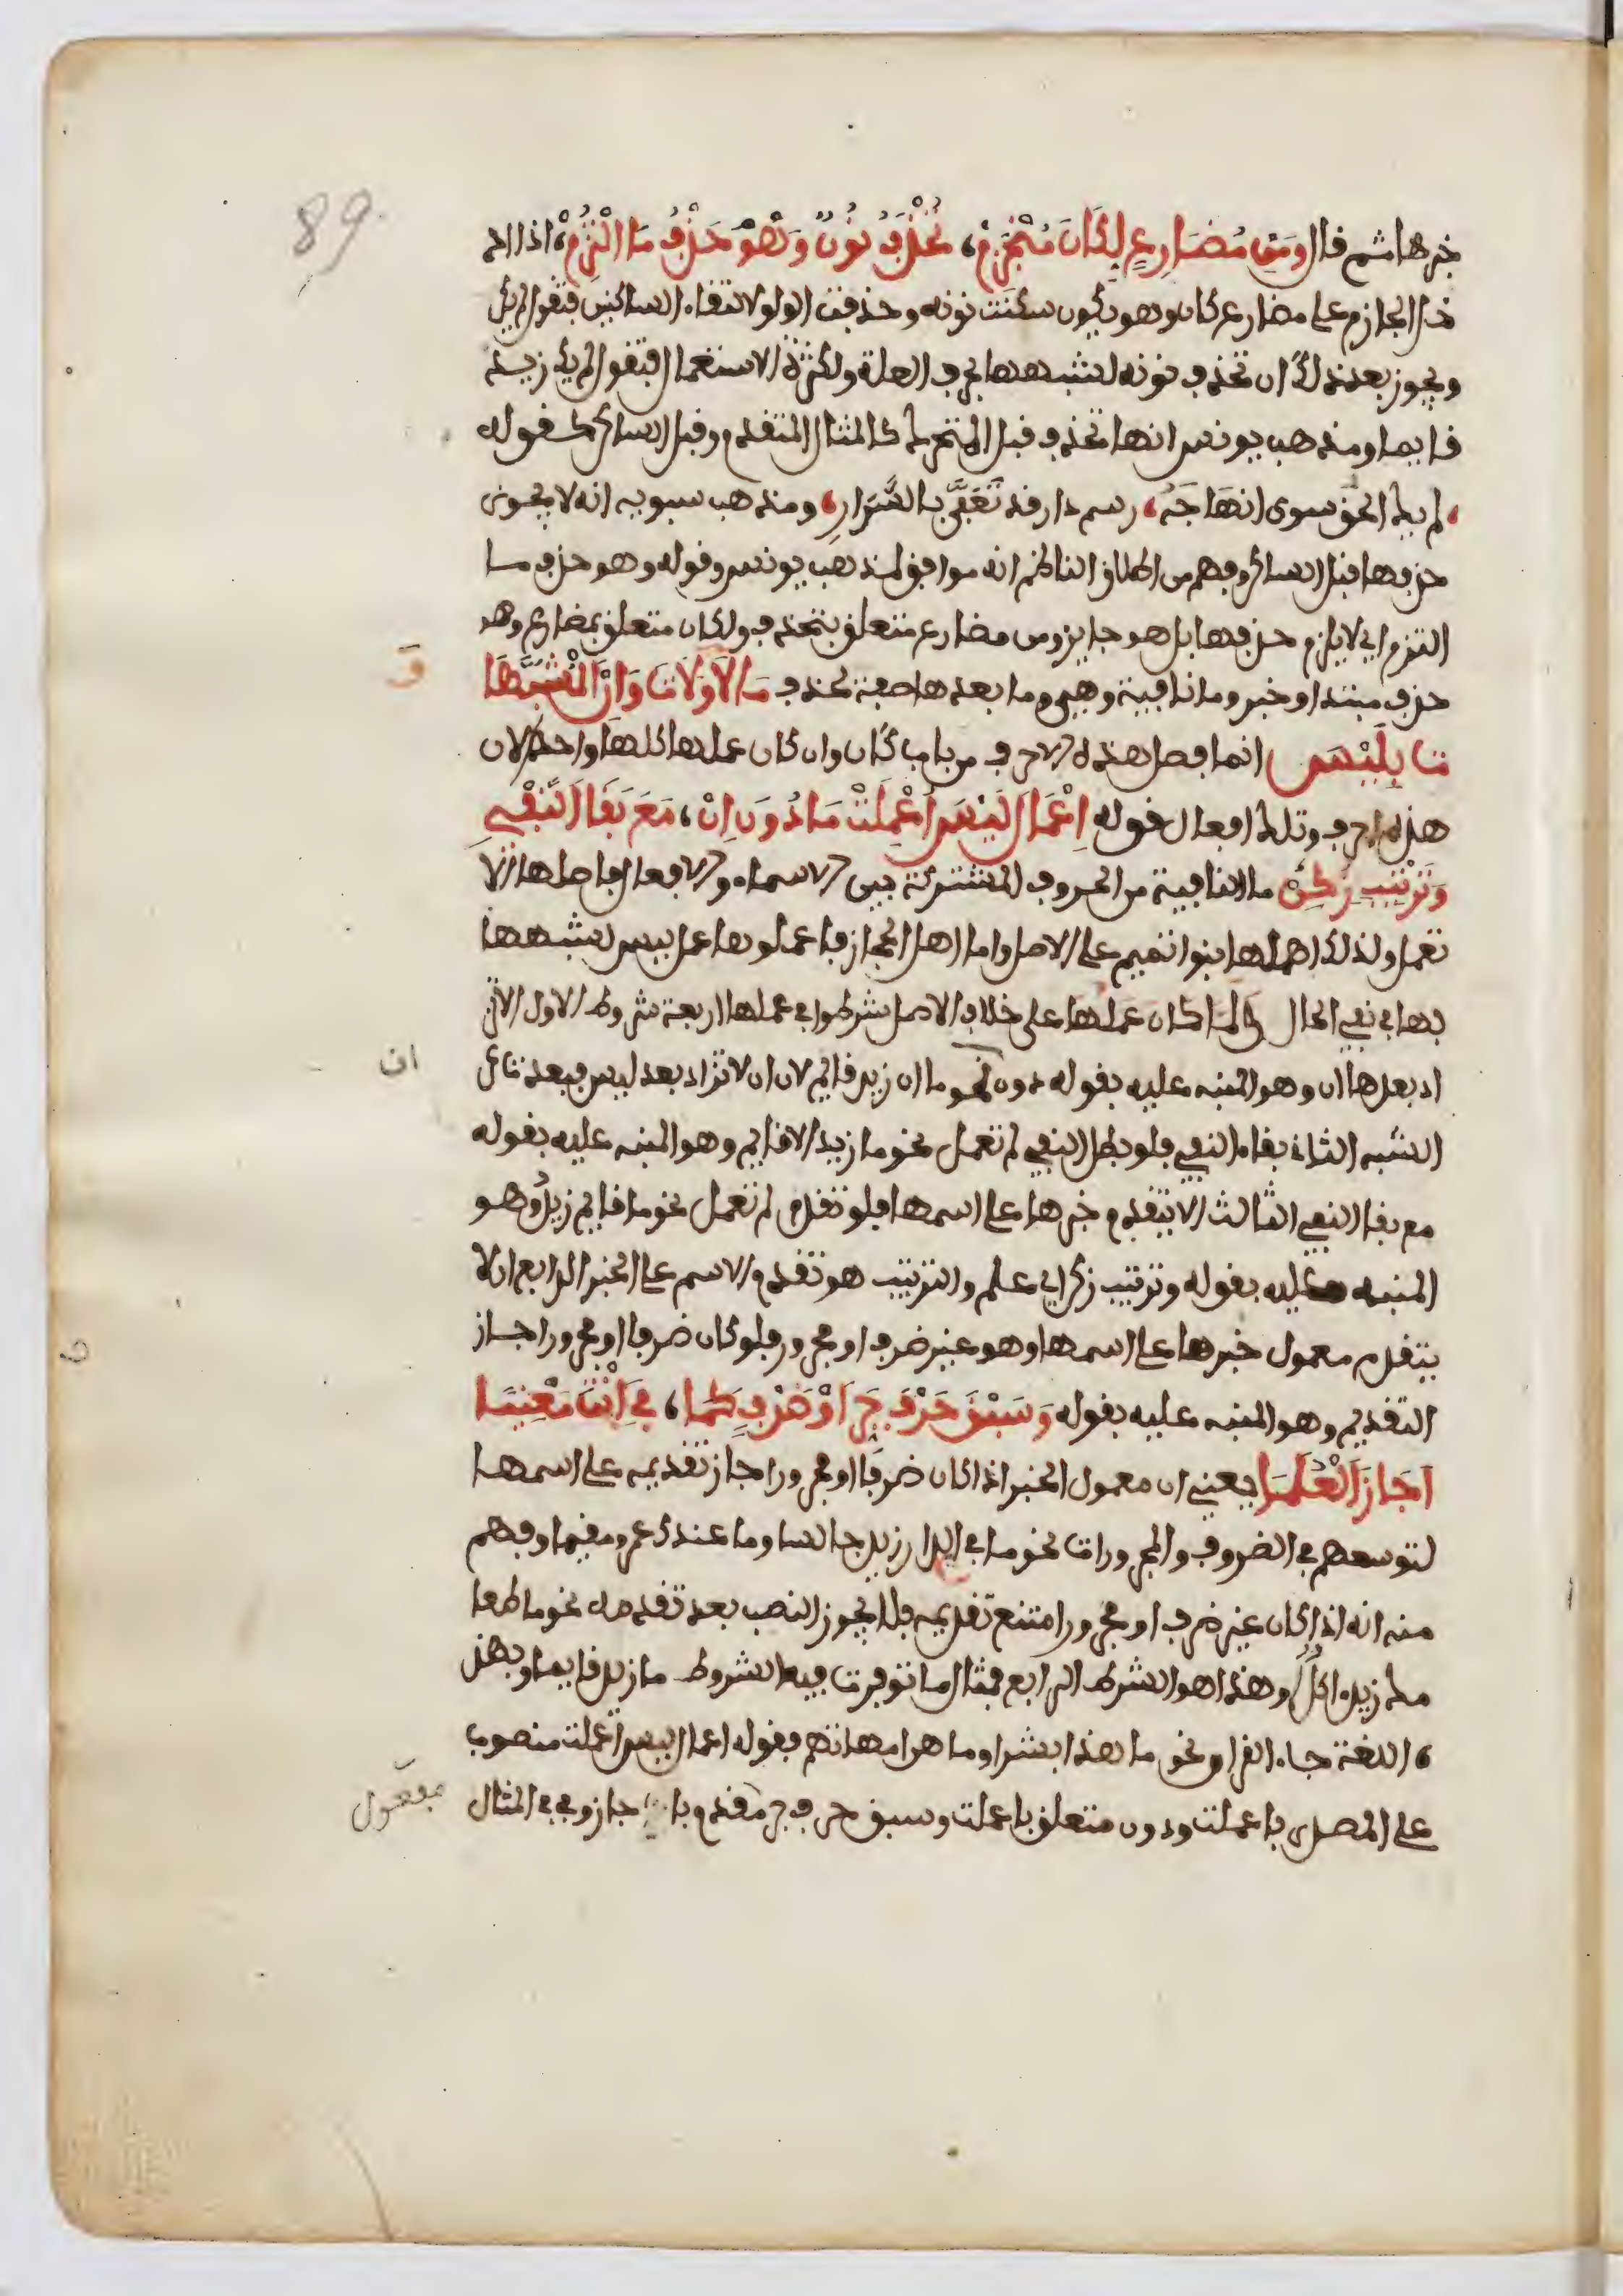 89
خبرها ثم قال وَمِن مُضَارِعٍ لِكَانَ مُنْجَزِمْ، تُحْذَفُ نُونٌ وَهْوَ حَذْفٌ مَا الْتُزِمْ، اذا اد
خل الجازم على مضارع كان وهو يكون سكنت نونه وحذفت الواو لالتقاء الساكنين فتقول لم يكن
ويجوز بعد ذلك ان تحذف نونه لشبهها بحرف العلة ولكثرة الاستعمال فتقول لم يك زيد
قايما ومذهب يونس انها تحذف قبل المتحرك كالمثال المتقدم وقبل الساكن كقوله
، لم يك الحق سوى ان هَاجَهُ، رسم دار قد تَعَفَّى بالسَّرَارِ، ومذهب سبويه انه لا يجوز
حذفها قبل الساكن وفهم من اطلاق الناظم انه موافق لمذهب يونس وقوله وهو حذف ما
التزم اي لا يلزم حذفها بل هو جايز ومن مضارع متعلق بتحذف ولكان متعلق بمضارع وهو
حذف مبتدا وخبر وما نافية وهي وما بعدها صفة لحذف مَا وَلَا وَلَاتَ وَإِنْ الْمُشَبَّهَا
ق
تُ بِلَيْسَ انما فصل هذه الاحرف من باب كان وان كان عملها كلها واحدا لان
هذه احرف وتلك افعال قوله إِعْمَالَ لَيْسَ أُعْمِلَتْ مَا دُونَ إِنْ، مَعَ بَقَا النَّفْيِ
وَتَرْتِيبٍ زُكِنْ ما النافية من الحروف المشتركة بين الاسماء والافعال فاصلها الا
تعمل ولذلك اهملها بنوا تميم على الاصل واما اهل الحجاز فاعملوها عمل ليس لشبهها
بها في نفي الحال ولما كان عملها على خلاف الاصل شرطوا في عملها اربعة شروط الاول الا تز
اد بعدها ان وهو المنبه عليه بقوله دون نحو ما ان زيد قايم لان ان لا تزاد بعد ليس فبعدت عن
ان
الشبه الثاني بقاء النفي فلو بطل النفي لم تعمل نحو ما زيد الا قايم وهو المنبه عليه بقوله
مع بقا النفي الثالث الا يتقدم خبرها على اسمها فلو تقدم لم تعمل نحو ما قايم زيد وهو
المنبه عليه بقوله وترتيب زكن اي علم والترتيب هو تقدم الاسم على الخبر الرابع ان لا
يتقدم معمول خبرها على اسمها وهو غير ضرف او مجرور فلو كان ضرفا او مجرورا جاز
التقديم وهو المنبه عليه بقوله وَسَبْقَ حَرْفِ جَرٍّ أَوْ ضَرْفٍ كَمَا، بِي أَنْتَ مَعْنِيًّا
أَجَازَ الْعُلَمَا يعني ان معمول الخبر اذا كان ضرفا او مجرورا جاز تقديمه على اسمها
لتوسعهم في الضروف والمجرورات نحو ما في الدار زيد جالسا وما عندك عمرو مقيما وفهم
منه انه اذا كان غير ضرف او مجرور امتنع تقديمه فلا يجوز النصب بعد تقدمه نحو ما طعا
مك زيد اكل وهذا هو الشرط الرابع فمثال ما توفرت فيه الشروط ما زيد قايما وبهذ
، اللغة جاء القران نحو ما هذا بشرا وما هن امهاتهم فقوله اعمال ليس اعملت منصوب
على المصدر باعملت ودون متعلق باعملت وسبق حرف جر مقدم باجاز وبي في المثال
مفعول